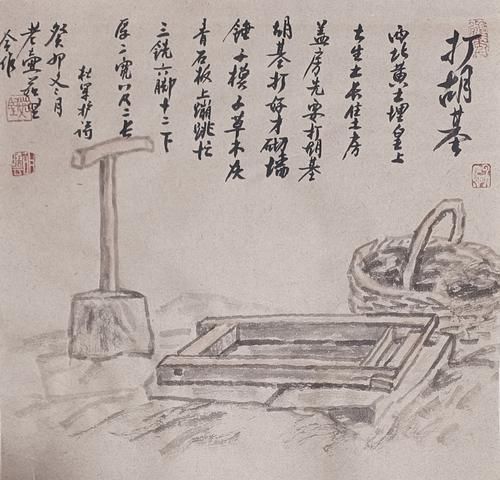 打胡基
西北黄土埋皇上
土生土长住土房
盖房先要打胡基
胡基打好才砌墙
锤子模子草木灰
青石板上蹦跳忙
三锨六脚十二下
厚二宽八尺二长
杜军护诗
癸卯冬月
老壶茹里
今作